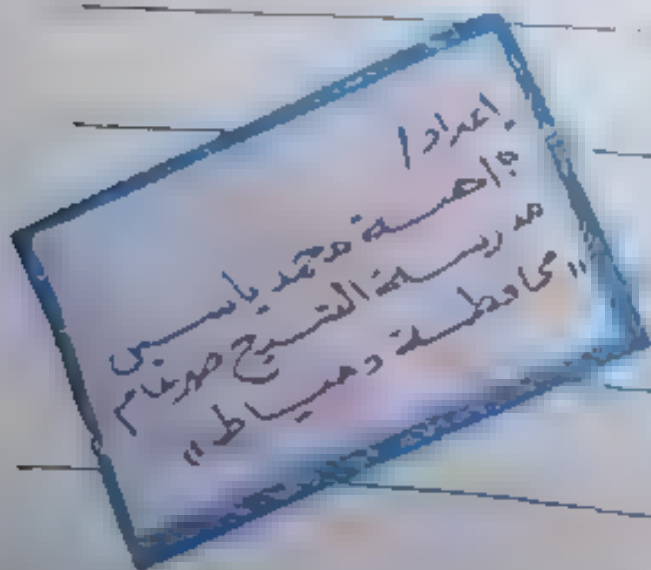 إعداد /
محمد ياسين
مدرسة الشيخ ضرغام
"محافظة دمياط"